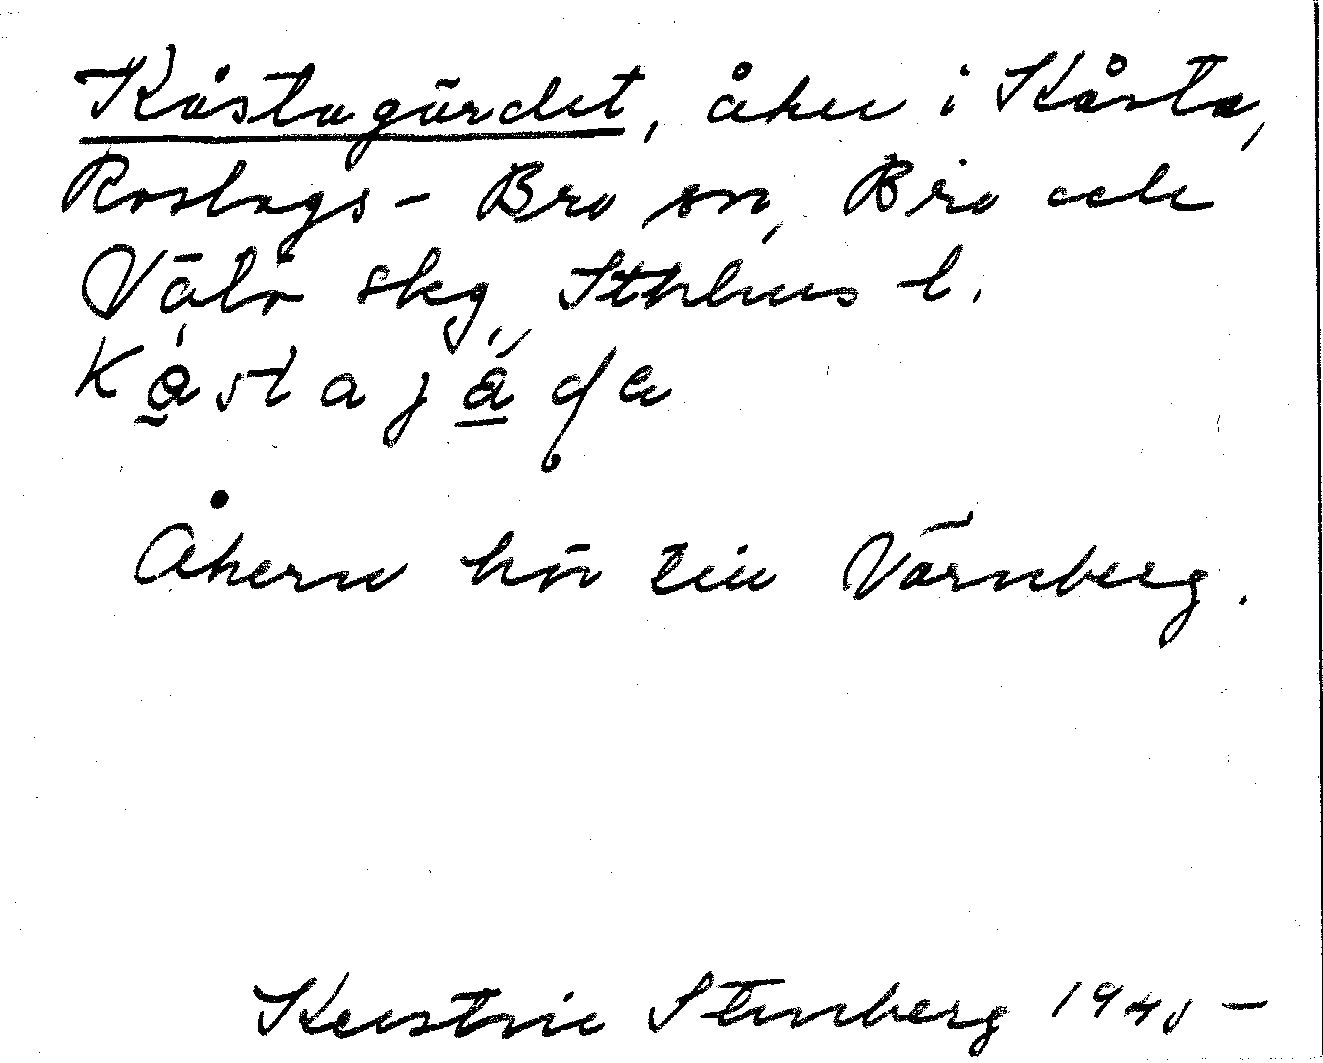 Kåstagärdet, åker i Kåsta,
Roslags-Bro sn, Bro och
Vätö skg, Sthlms l.
Åkern hör till Värnberg.
Stenberg